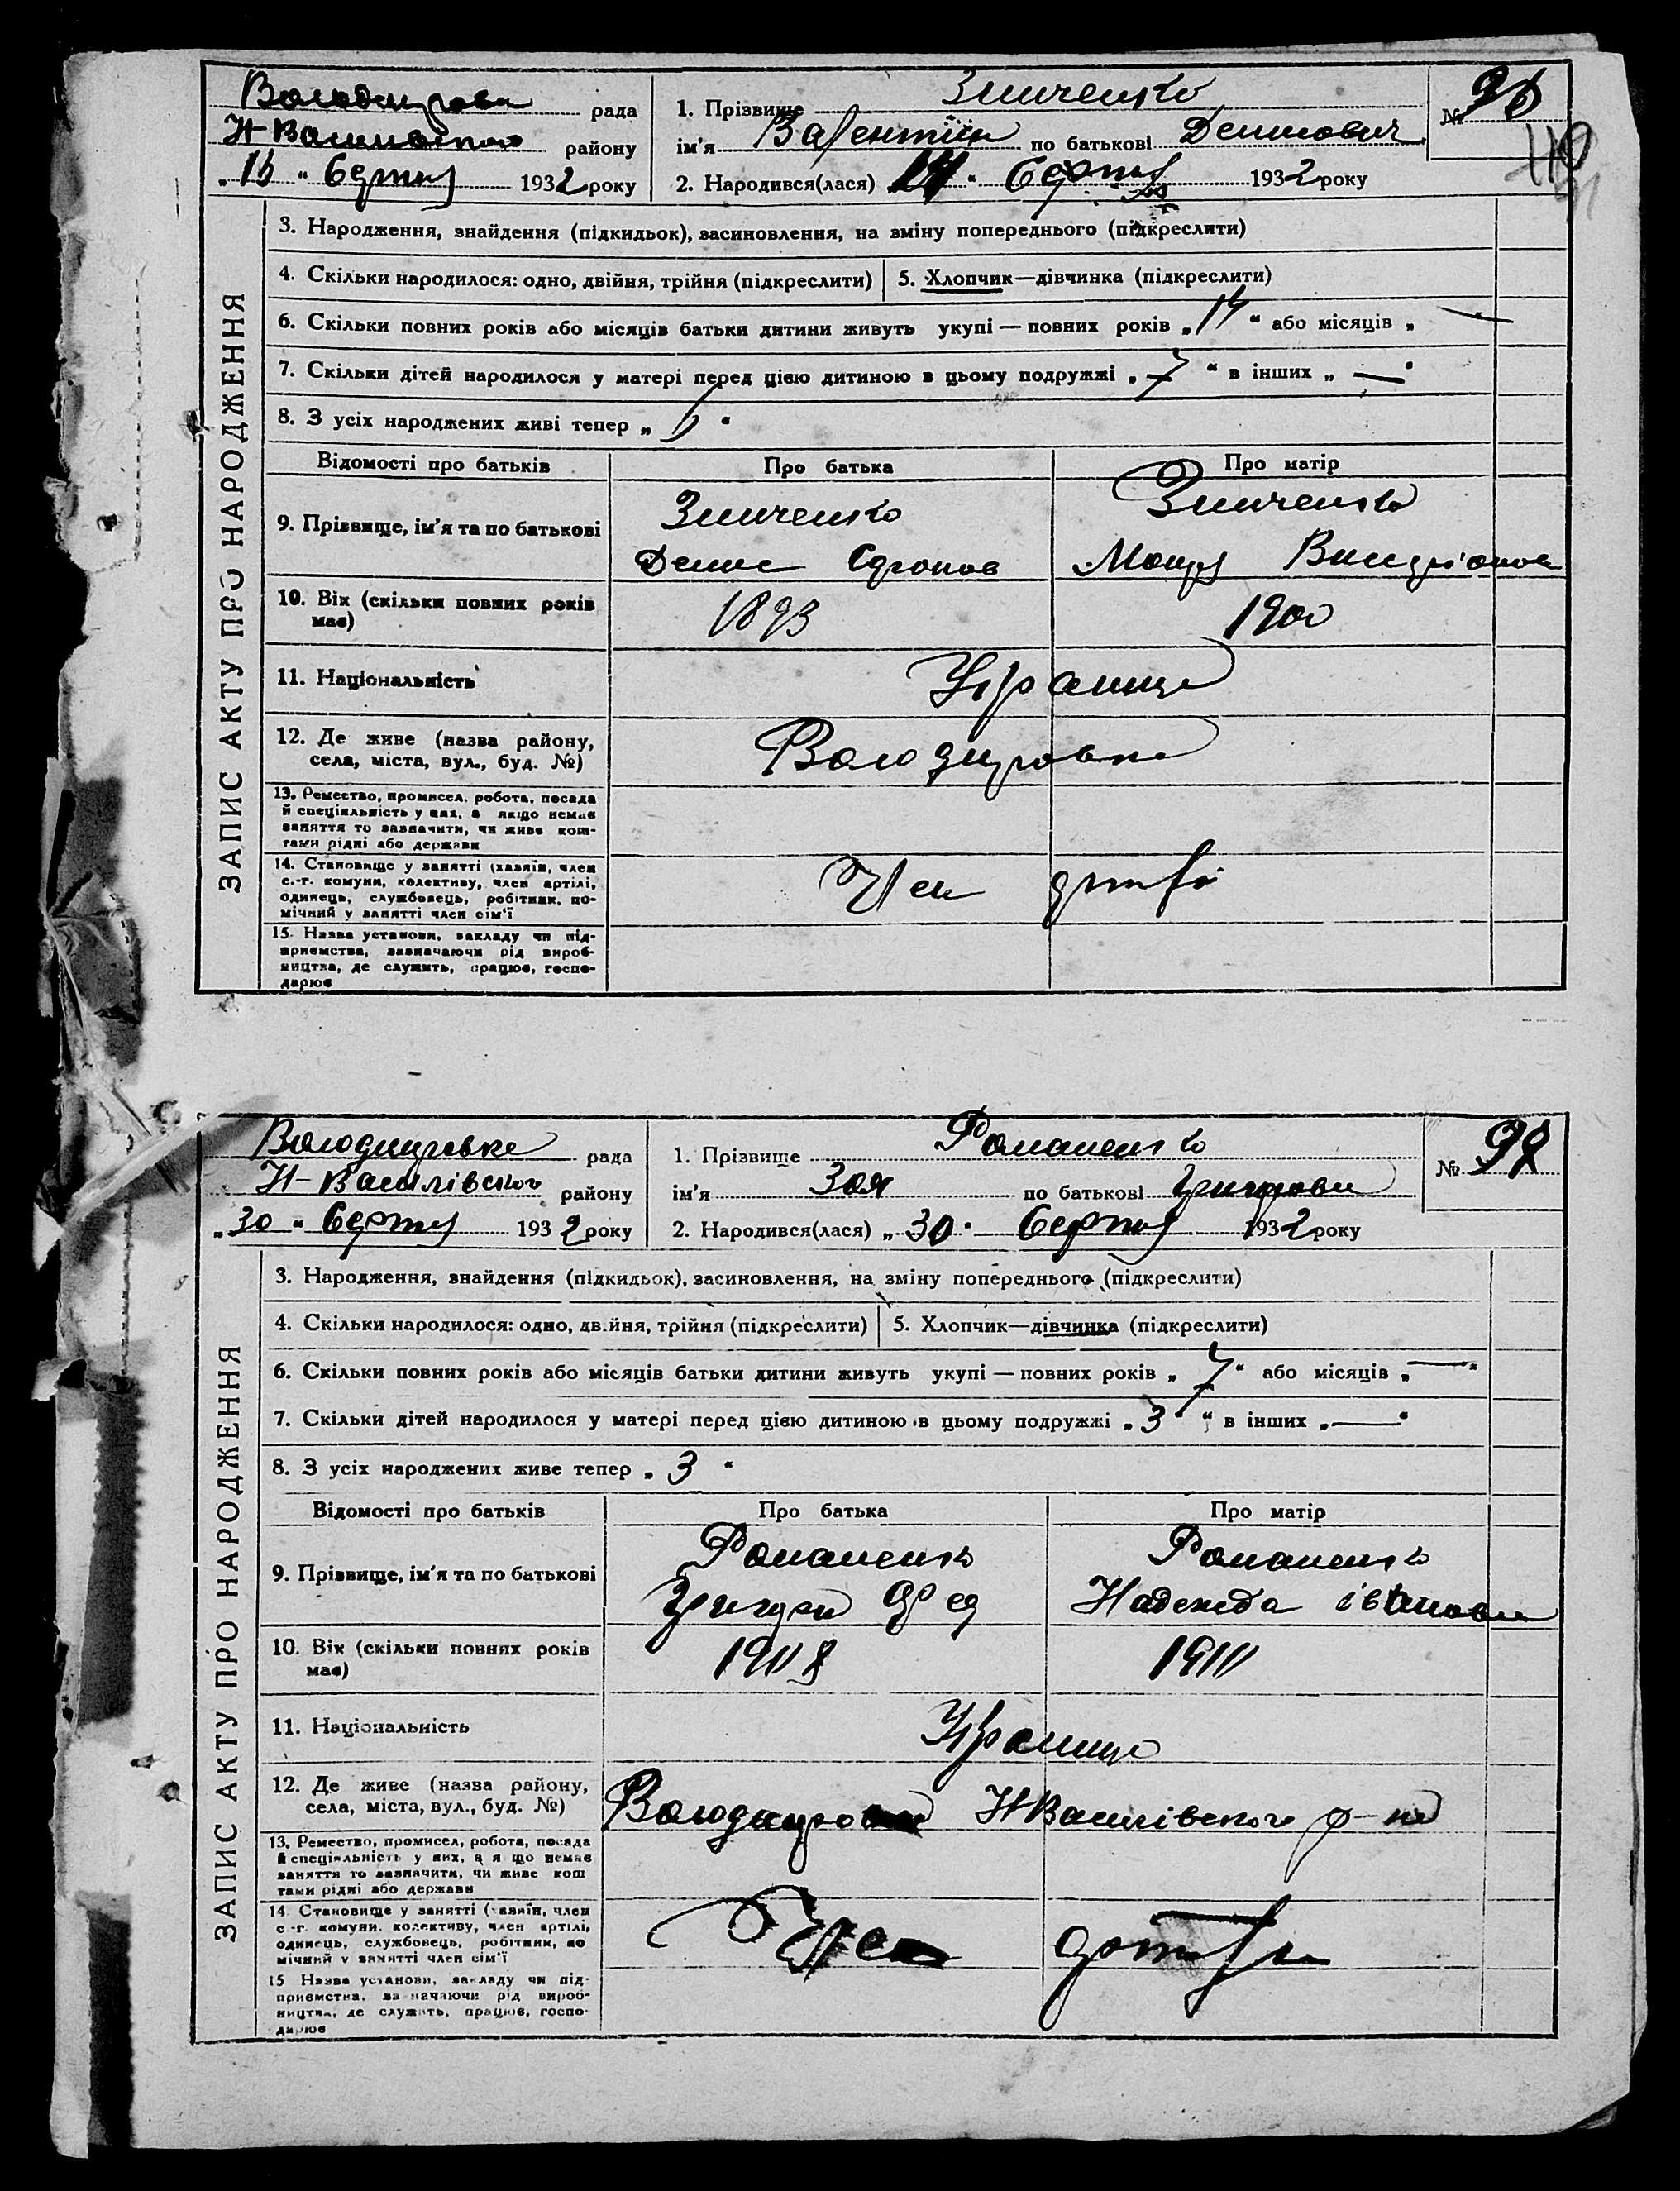 рада
1. Прізвище Зинченко
№ 96
Н-
району
ім'я Валентін по батькові Денисович
"16" Серпня 1932 року
2. Народився(лася) Серпня 1932 року
ЗАПИС АКТУ ПРО НАРОДЖЕННЯ
3. Народження, знайдення (підкидьок), засиновлення, на зміну попереднього (підкреслити)
4. Скільки народилося: одно, двійня, трійня (підкреслити)
5. Хлопчик—дівчинка (підкреслити)
6. Скільки повних років або місяців батьки дитини живуть укупі — повних років „14“ або місяців „—“
7. Скільки дітей народилося у матері перед цією дитиною в цьому подружжі „7“ в інших „—“
8. З усіх народжених живі тепер „ “
Відомості про батьків
Про батька
Про матір
9. Прізвище, ім'я та по батькові
Зинченко
Зинченко
Денис
10. Вік (скільки повних років
має)
1893
1900
11. Національність
Украинці
12. Де живе (назва району,
села, міста, вул., буд. №)
Володимровка
13. Ремество, промисел, робота, посада
й спеціяльність у них, а якщо немає
заняття то зазначити, чи живе кош-
тами рідні або держави
14. Становище у занятті (хазяїн, член
с.-г. комуни, колективу, член артілі,
одинець, службовець, робітник, по-
мічний у занятті член сім'ї
Член
15. Назва установи, закладу чи під-
приємства, зазначаючи рід вироб-
ництва, де служить, працює, госпо-
дарює
Володимровка рада
1. Прізвище Романенко
№
Н-Василівского району
ім'я Зоя по батькові
"30" Серпня 1932 року
2. Народився(лася) „30“ Серпня 1932 року
ЗАПИС АКТУ ПРО НАРОДЖЕННЯ
3. Народження, знайдення (підкидьок), засиновлення, на зміну попереднього (підкреслити)
4. Скільки народилося: одно, двійня, трійня (підкреслити)
5. Хлопчик—дівчинка (підкреслити)
6. Скільки повних років або місяців батьки дитини живуть укупі — повних років „7“ або місяців „—“
7. Скільки дітей народилося у матері перед цією дитиною в цьому подружжі „3“ в інших „—“
8. З усіх народжених живе тепер „3“
Відомості про батьків
Про батька
Про матір
9. Прізвище, ім'я та по батькові
Романенко
Романенко
Надежда івановна
10. Вік (скільки повних років
має)
11. Національність
Украинці
12. Де живе (назва району,
села, міста, вул., буд. №)
НВасилівского р-на
13. Ремество, промисел, робота, посада
й спеціяльність у них, а якщо немає
заняття то зазначити, чи живе кош
тами рідні або держави
14. Становище у занятті (хазяїн, член
с.-г. комуни, колективу, член артілі,
одинець, службовець, робітник, по
мічний у занятті член сім'ї
Член
15 Назва установи, закладу чи під-
приємства, зазначаючи рід вироб-
ництва, де служить, працює, госпо-
дарює